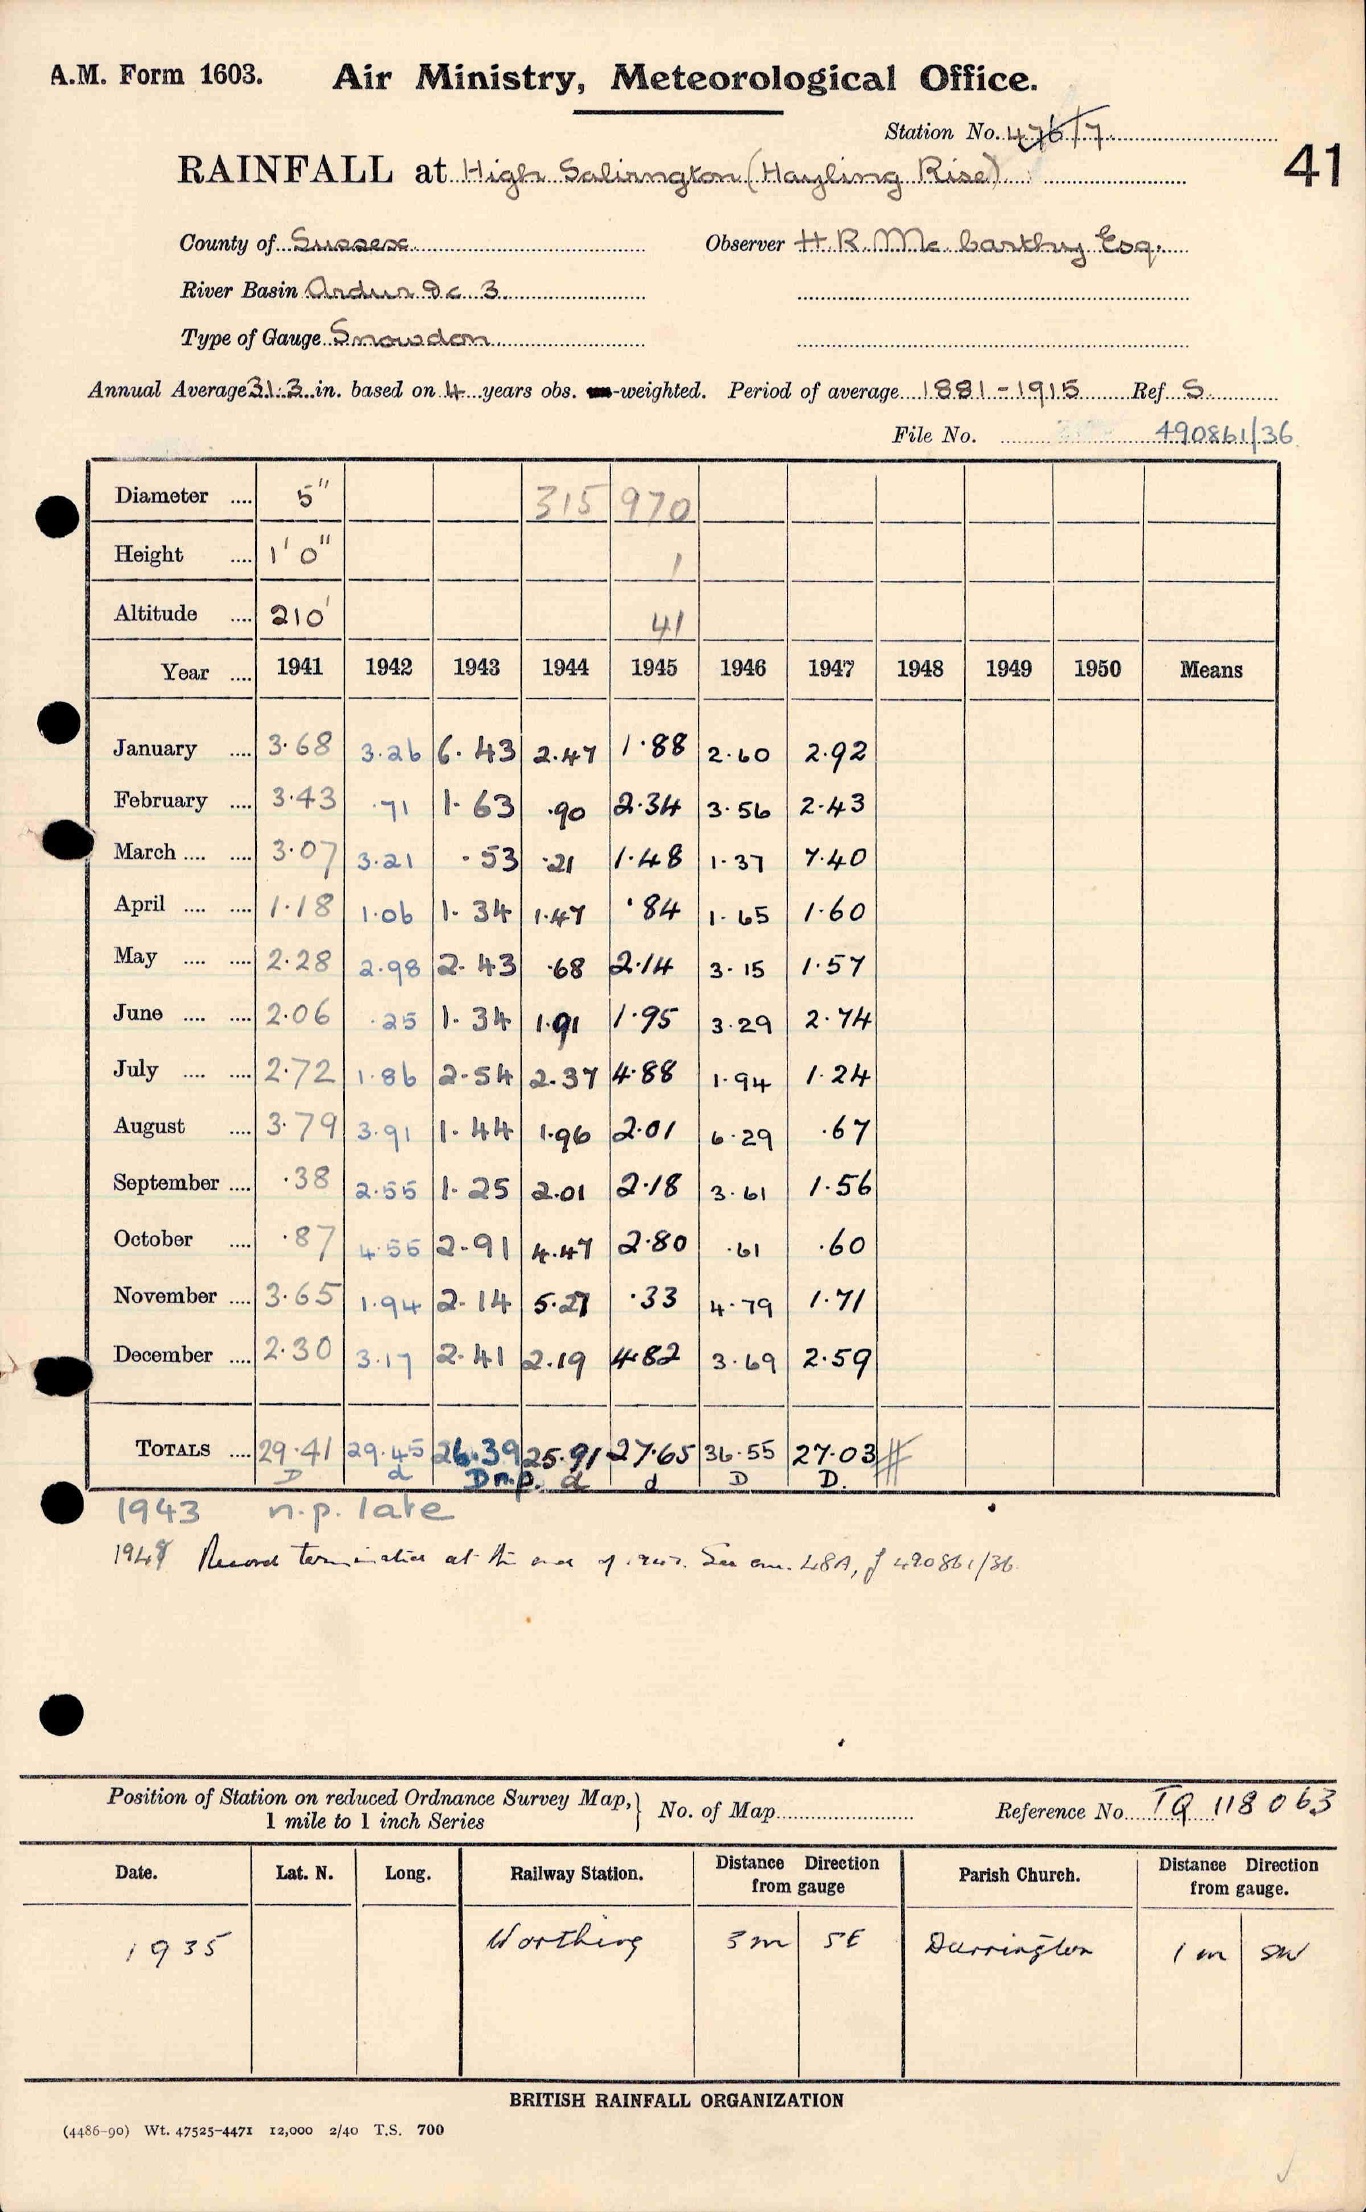 A.M. Form 1603. Air Ministry, Meteorological Office.
Station No. 476/7
41
RAINFALL at High Salvington (Hayling Rise)
County of Sussex Observer H.R. Mc Carthy Esq.
River Basin Adur &c 3
Type of Gauge Snowdon
Annual Average 31.3 in. based on 4 years obs. -weighted. Period of average 1881-1915 Ref S
File No. 490861/36
Diameter .... 5" 315 970
Height .... 1' 0" 1
Altitude .... 210' 41
Year .... 1941 1942 1943 1944 1945 1946 1947 1948 1949 1950 Means
January .... 3.68 3.26 6.43 2.47 1.88 2.60 2.92
February .... 3.43 .71 1.63 .90 2.34 3.56 2.43
March .... .... 3.07 3.21 .53 .21 1.48 1.37 7.40
April .... .... 1.18 1.06 1.34 1.47 .84 1.65 1.60
May .... .... 2.28 2.98 2.43 .68 2.14 3.15 1.57
June .... .... 2.06 .25 1.34 1.91 1.95 3.29 2.74
July .... .... 2.72 1.86 2.54 2.37 4.88 1.94 1.24
August .... 3.79 3.91 1.44 1.96 2.01 6.29 .67
September .... .38 2.55 1.25 2.01 2.18 3.61 1.56
October .... .87 4.55 2.91 4.47 2.80 .61 .60
November .... 3.65 1.94 2.14 5.27 .33 4.79 1.71
December .... 2.30 3.17 2.41 2.19 4.82 3.69 2.59
TOTALS .... 29.41 29.45 26.39 25.91 27.65 36.55 27.03
D d D n.p. d d D D.
1943 n.p. late
1947 Record terminated at the end of 1947. See enc. 48A, f 490861/36
Position of Station on reduced Ordnance Survey Map, No. of Map Reference No. TQ 118063
1 mile to 1 inch Series
Date. Lat. N. Long. Railway Station. Distance Direction from gauge Parish Church. Distance Direction from gauge.
1935 Worthing 3 m SE Durrington 1 m SW
BRITISH RAINFALL ORGANIZATION
(4486-90) Wt. 47525-4471 12,000 2/40 T.S. 700